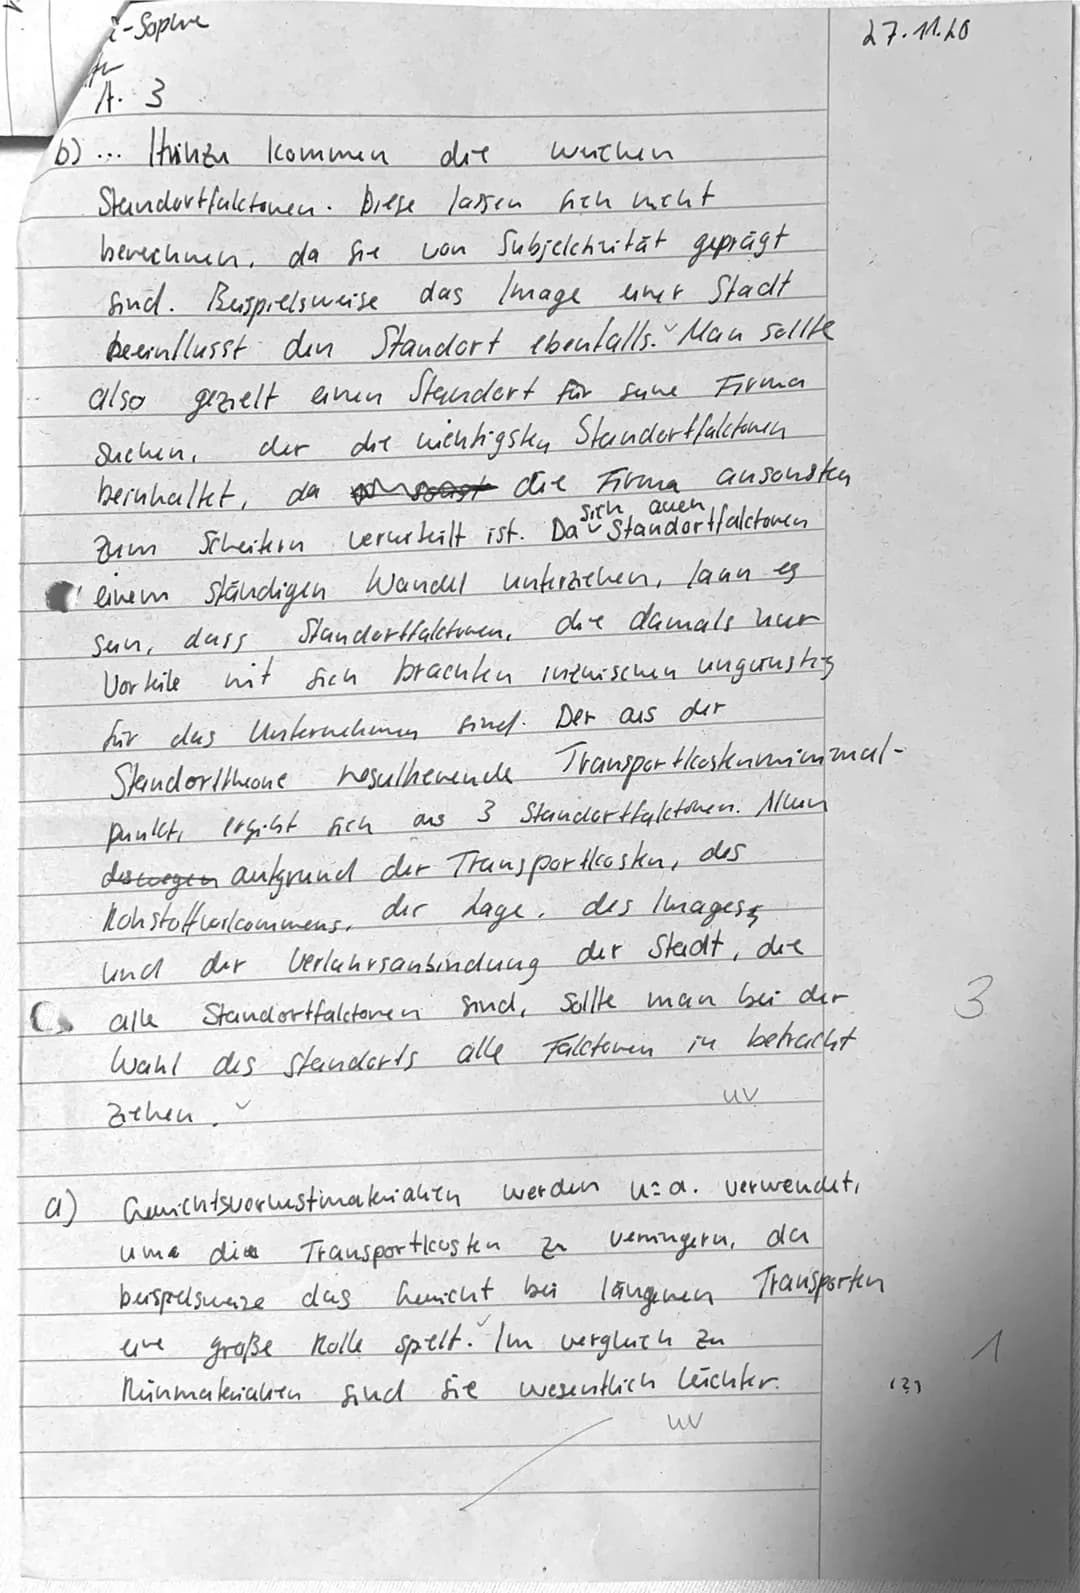 -Sophie
27.11.20
A. 3
b) ... Hinzu kommen die weichen
Standortfaktoren. Diese lassen sich nicht
berechnen, da sie von Subjektivität geprägt
sind. Beispielsweise das Image einer Stadt
beeinflusst den Standort ebenfalls. Man sollte
also gezielt einen Standort für seine Firma
suchen, der die wichtigsten Standortfaktoren
beinhaltet, da die Firma ansonsten
zum Scheitern verurteilt ist. Da sich auch Standortfaktoren
einem ständigen Wandel unterziehen, kann es
sein, dass Standortfaktoren, die damals nur
Vorteile mit sich brachten inzwischen ungünstig
für das Unternehmen sind. Der aus der
Standorttheorie resultierende Transportkostenminimal-
punkt, ergibt sich aus 3 Standortfaktoren. Allein
deswegen aufgrund der Transportkosten, des
Rohstoffvorkommens, der Lage, des Images
und der Verkehrsanbindung der Stadt, die
alle Standortfaktoren sind, sollte man bei der
3
Wahl des Standorts alle Faktoren in betracht
ziehen.
uv
a) Gewichtsverlustmaterialien werden u. a. verwendet,
um die Transportkosten zu verringern, da
beispielsweise das Gewicht bei längeren Transporten
eine große Rolle spielt. Im vergleich zu
1
Reinmaterialien sind sie wesentlich leichter.
(2)
uv